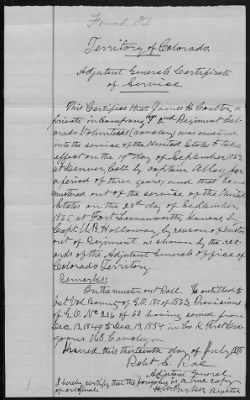 Found O.K.
Territory of Colorado.
Adjutant General's Certificate
of Service.
This Certifies that James H. Coulter, a
private in Company 2nd Regiment Col-
orado Volunteers (Cavalry) was mustered
into the service of the United States to take
effect on the 19th day of September 186
at Denver, Colo by Captain Alley, for
a period of three years; and that he was
mustered out of the service of the United
States on the 23rd day of September
1865 at Fort Leavenworth Kansas by
Capt. W.B. Holloway by reason of muster
out of Regiment as shown by the rec-
ords of the Adjutant General's office of
Colorado Territory.
Remarks:
On the muster out Roll. Is entitled to
Vet. Vol. Bounty of G.O. 191 of 1863, Provisions
of G.O. No. 216 of 63 having served from
Dec. 13, 1849 to Dec. 13, 1854 in Co. K First Dra-
goons U.S. Cavalry.
Issued this thirteenth day of July
Adjutant General.
I hereby certify that the foregoing is a true copy
of original. Register